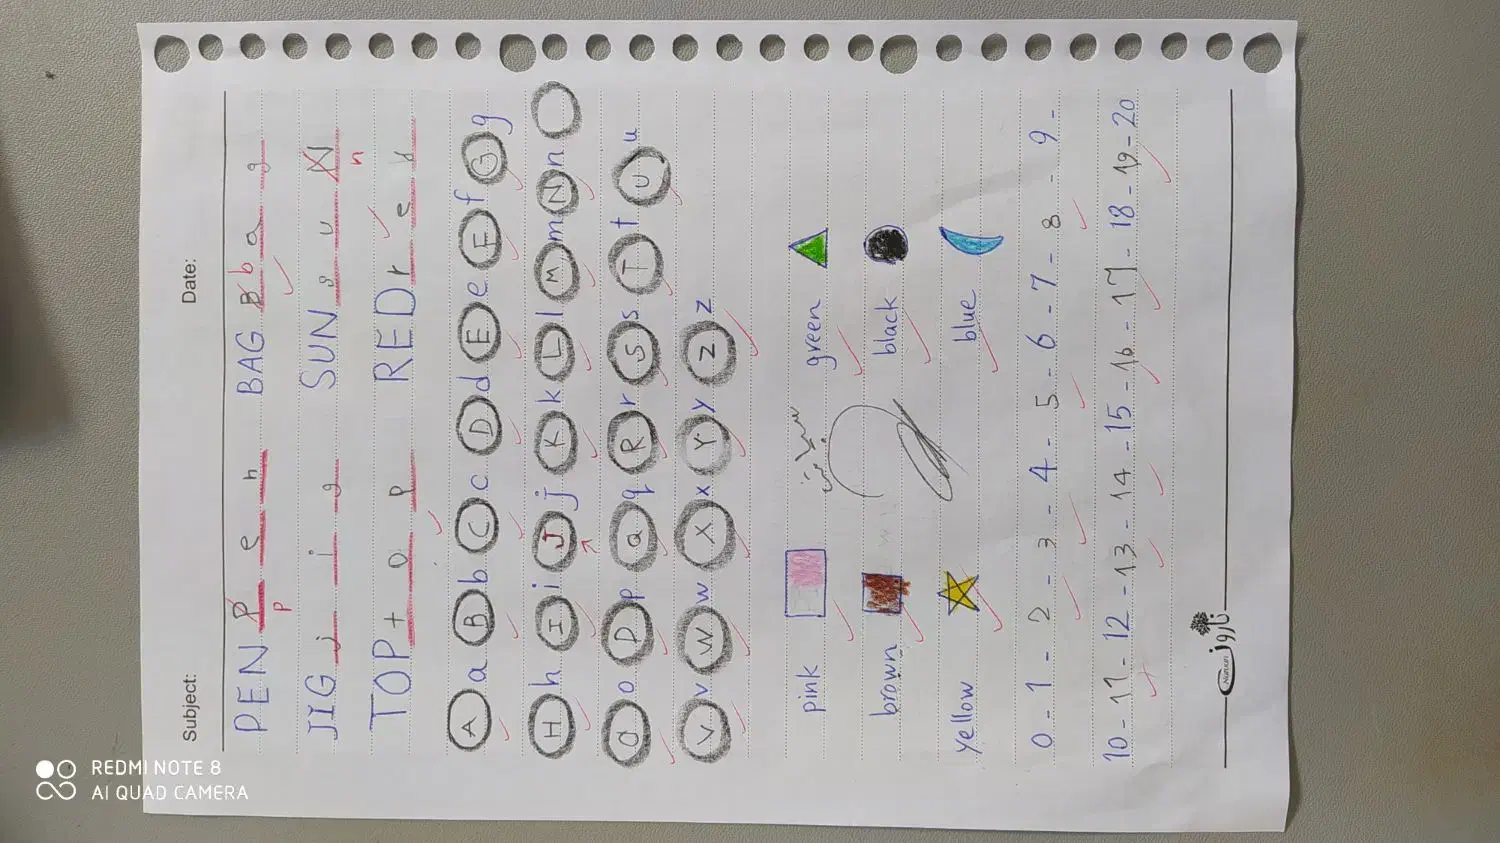 Subject: Date:
PEN p e n BAG b a g
p
JIG j i g SUN s u N
n
TOP t o p RED r e d
A a B b C c D d E e F f G g
H h I i J j K k L l M m N n
O o P p Q q R r S s T t U u
V v W w X x Y y Z z
pink green
brown black
yellow blue
0 - 1 - 2 - 3 - 4 - 5 - 6 - 7 - 8 - 9 -
10 - 11 - 12 - 13 - 14 - 15 - 16 - 17 - 18 - 19 - 20
Narven نارون
REDMI NOTE 8
AI QUAD CAMERA